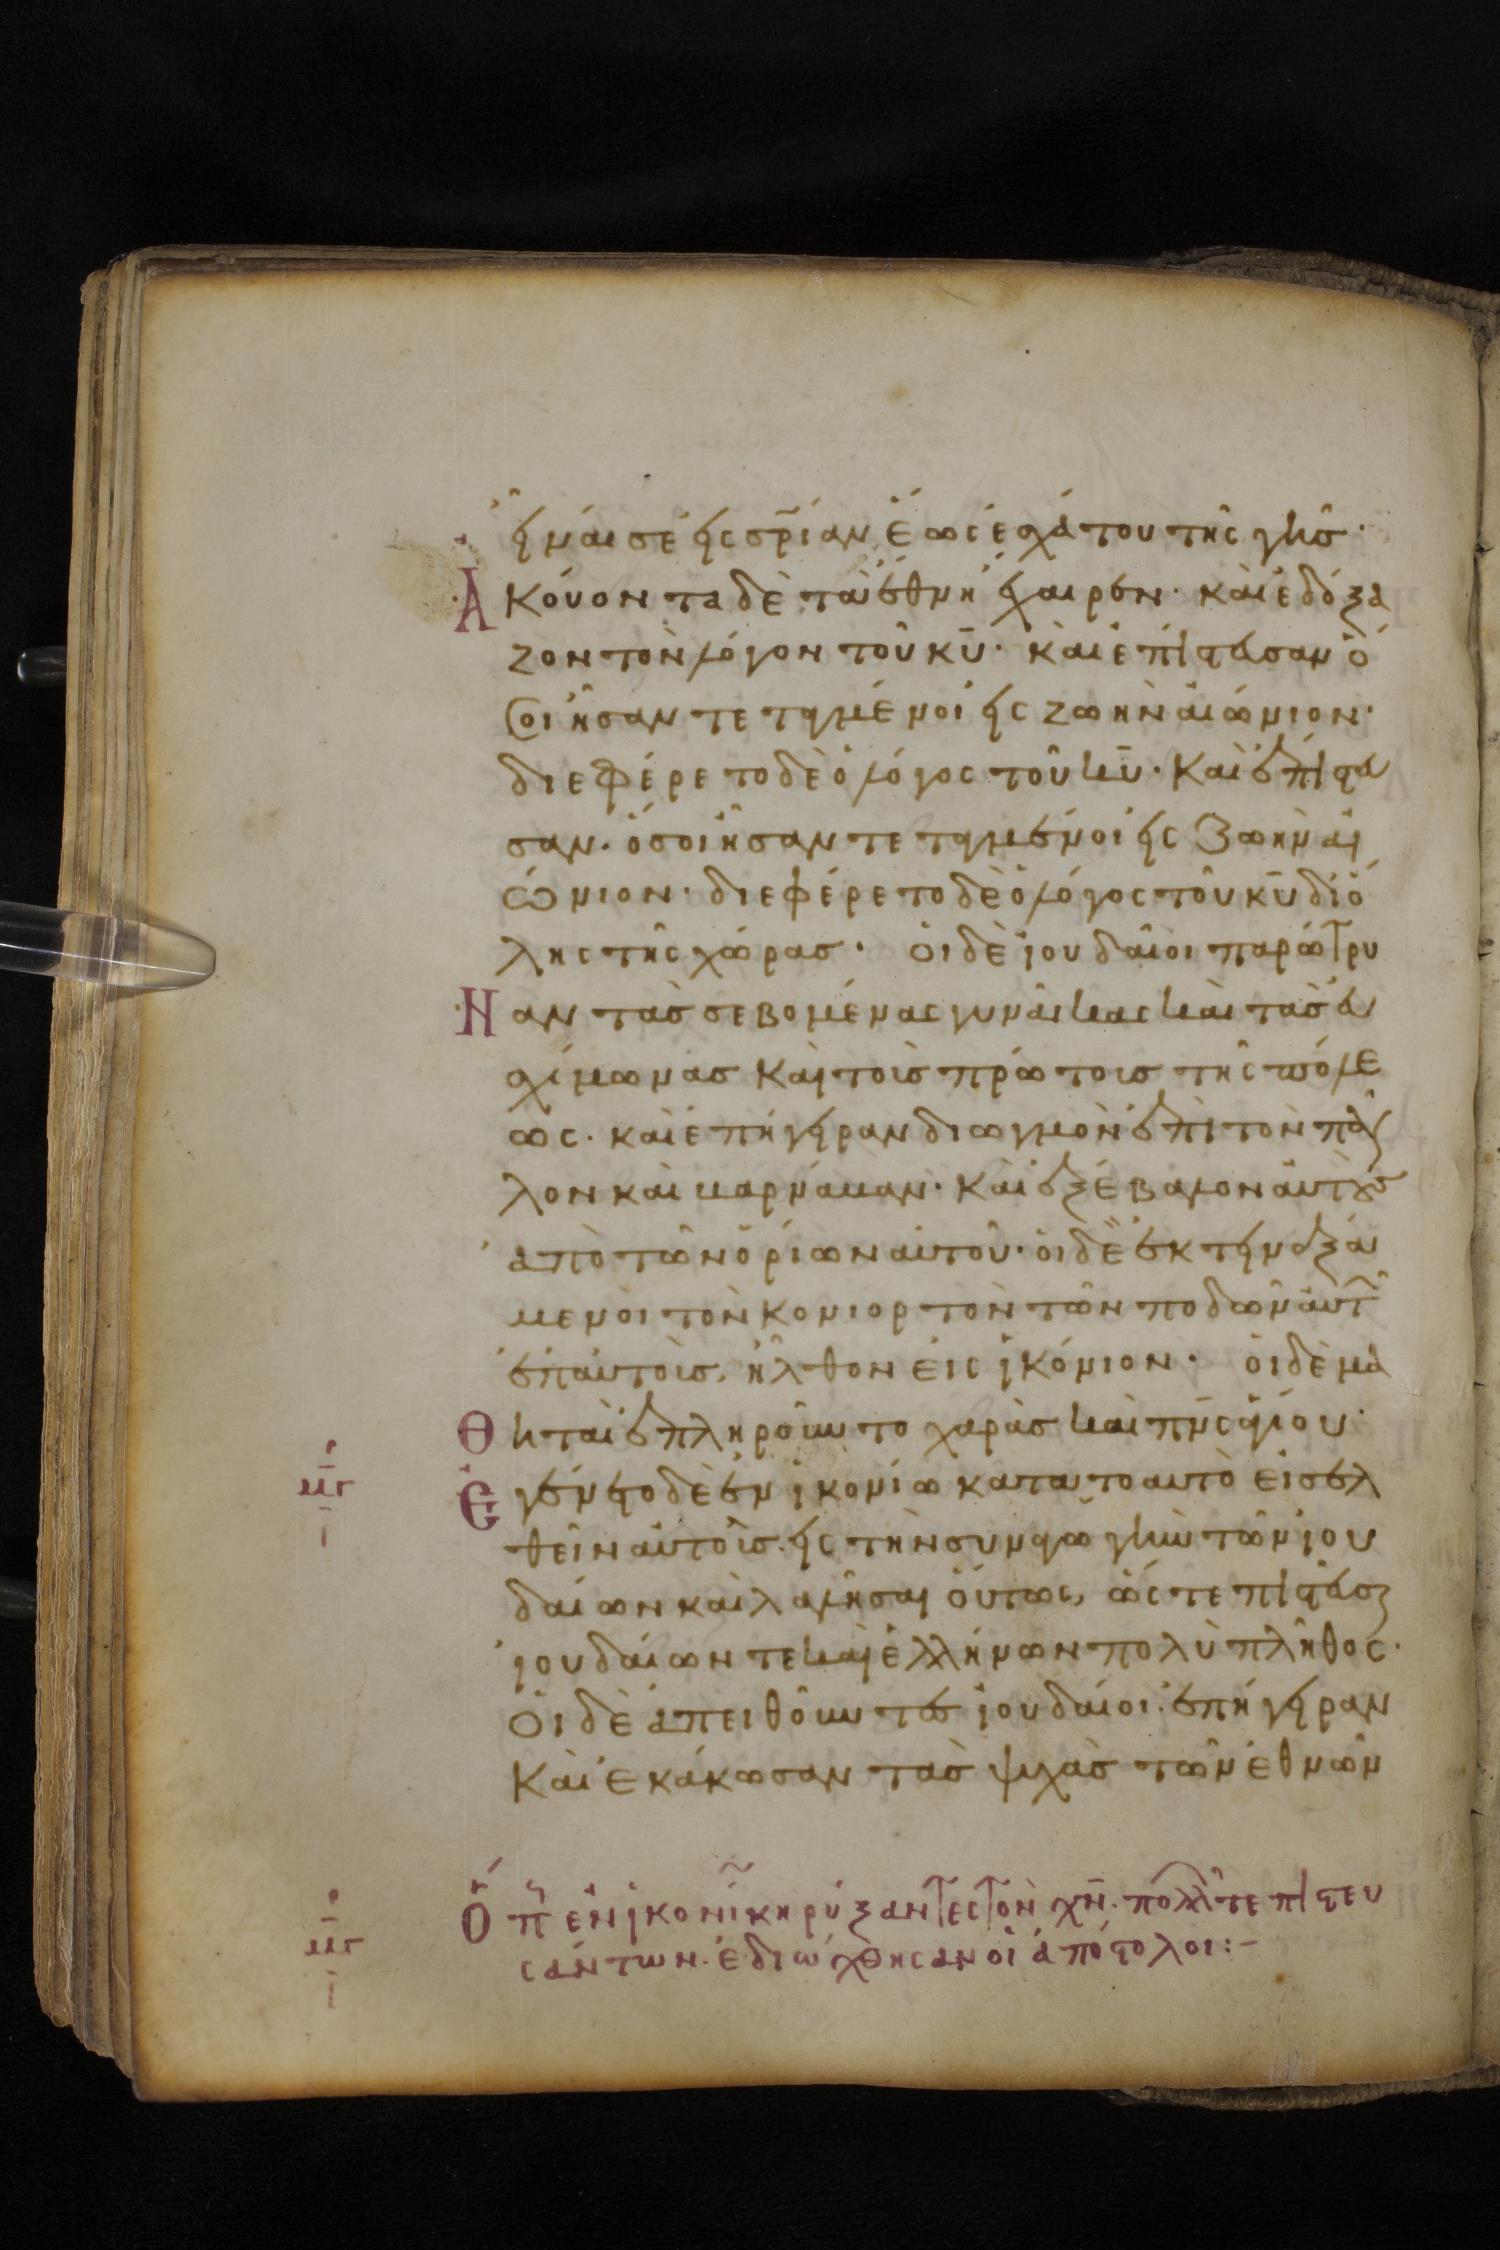 εἶναί σε εἰς σ̅ρ̅ίαν ἕως ἐσχάτου τῆς γῆς·
Ἀκούοντα δὲ τὰ ἔθνη ἔχαιρεν· καὶ ἐδόξα
ζον τὸν λόγον τοῦ κ̅υ̅· καὶ ἐπίστευσαν ὅ
σοι ἦσαν τεταγμένοι εἰς ζωὴν αἰώνιον·
διεφέρετο δὲ ὁ λόγος τοῦ κ̅υ̅· καὶ ἐπίστευ
σαν· ὅσοι ἦσαν τεταγμένοι εἰς ζωὴν αἰ
ώνιον· διεφέρετο δὲ ὁ λόγος τοῦ κ̅υ̅ δι ὅ
λης τῆς χώρας· οἱ δὲ ἰουδαῖοι παρώτρυ
Ναν τὰς σεβομένας γυναῖκας καὶ τὰς εὐ
σχήμωνας καὶ τοὶς πρώτοις τῆς πόλε
ως· καὶ ἐπήγειραν διωγμὸν ἐπὶ τὸν παῦ
λον καὶ βαρνάβαν· καὶ ἐξέβαλον αὐτοὺς
ἀπὸ τῶν ὁρίων αὐτοῦ· οἱ δὲ ἐκτηναξά
μενοι τὸν κονιορτὸν τῶν ποδῶν αὐτῶ
ἐπ αὐτοὶς, ἦλθον εἰς ἰκόνιον· οἱ δὲ μα
Θηταὶ ἐπληροῦντο χαρᾶς καὶ π̅ν̅ς ἁγίου·
μ̅γ̅ Ἐγένετο δὲ ἐν ἰκονίω κατα το αυτὸ εἰσελ
θεῖν αὐτοῖς εἰς τὴν συναγωγὴν τῶν ἰου
δαίων καὶ λαλῆσαι οὕτως, ὥστε πιστεῦσαι
ἰουδαίων τε καὶ ἑλλήνων πολὺ πλῆθος·
Οἱ δὲ ἀπειθοῦντες ἰουδαίοι· ἐπήγειραν
καὶ ἐκάκωσαν τὰς ψυχὰς τῶν ἐθνῶν
μ̅γ̅ Ὅπ ἐν ἰκονίω κηρύξαντες τὸν χ̅ν̅· πολλῶν τε πιστευ
σάντων· ἐδιώχθησαν οἱ ἀπόστολοι:-